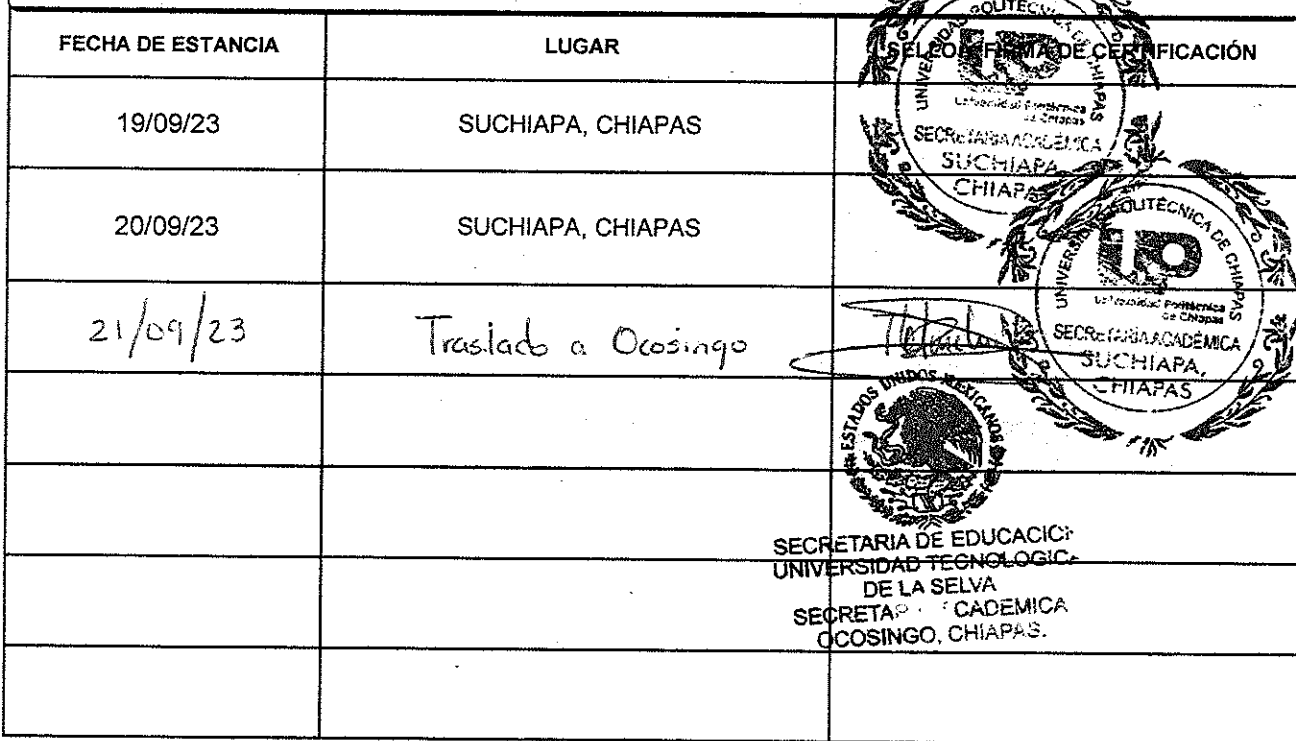 FECHA DE ESTANCIA LUGAR SELLO Y FIRMA DE CERTIFICACIÓN
UNIVERSIDAD POLITÉCNICA DE CHIAPAS
Universidad Politécnica
de Chiapas
SECRETARIA ACADÉMICA
SUCHIAPA,
CHIAPAS
19/09/23 SUCHIAPA, CHIAPAS
20/09/23 SUCHIAPA, CHIAPAS
UNIVERSIDAD POLITÉCNICA DE CHIAPAS
Universidad Politécnica
de Chiapas
SECRETARIA ACADÉMICA
SUCHIAPA,
CHIAPAS
21/09/23 Traslado a Ocosingo
ESTADOS UNIDOS MEXICANOS
SECRETARIA DE EDUCACIÓN
UNIVERSIDAD TECNOLOGICA
DE LA SELVA
SECRETARIA ACADEMICA
OCOSINGO, CHIAPAS.